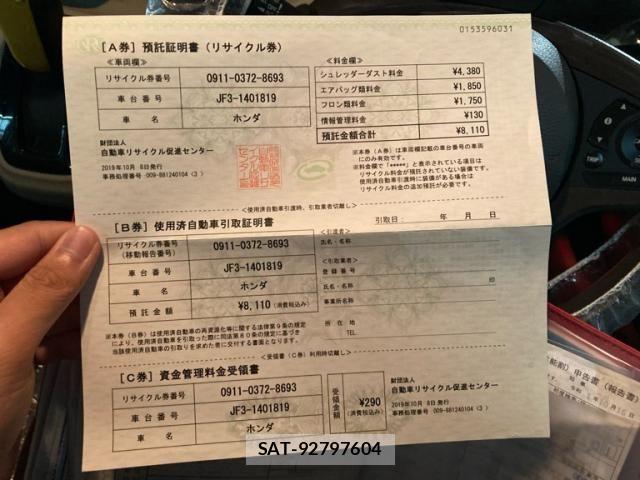 0153596031
[A券] 預託証明書(リサイクル券)
≪車両欄≫
リサイクル券番号 0911-0372-8693
車台番号 JF3-1401819
車名 ホンダ
≪料金欄≫
シュレッダーダスト料金 ¥4,380
エアバッグ類料金 ¥1,850
フロン類料金 ¥1,750
情報管理料金 ¥130
預託金額合計 ¥8,110
財団法人
自動車リサイクル促進センター
2019年10月 8日発行
事務処理番号 009-881240104 〈3〉
※本券(A券)は車両欄記載の車台番号の車両
にのみ有効です。
※料金欄で「*****」と表示されている項目は
リサイクル料金が預託されていない装備です。
使用済自動車引渡時に装備がある場合は
リサイクル料金の追加預託が必要です。
<使用済自動車引渡時、引取業者切離し>
[B券] 使用済自動車引取証明書
引取日: 年 月 日
リサイクル券番号
(移動報告番号) 0911-0372-8693
車台番号 JF3-1401819
車名 ホンダ
預託金額 ¥8,110 (消費税込み)
<引渡者>
氏名・名称
<引取業者>
登録番号
氏名・名称 印
事業所名称
所在地
TEL
※本券(B券)は使用済自動車の再資源化等に関する法律第9条の規定
により、使用済自動車を引取った際に同法第80条の規定に基づき
当該使用済自動車の引取りを求めた者に交付する書面となります。
<受領書(C券)利用時切離し>
[C券] 資金管理料金受領書
リサイクル券番号 0911-0372-8693
車台番号 JF3-1401819
車名 ホンダ
受領金額 ¥290
(消費税込み)
財団法人
自動車リサイクル促進センター
2019年10月 8日発行
事務処理番号 009-881240104 〈3〉
TRIP
MAIN
SAT-92797604